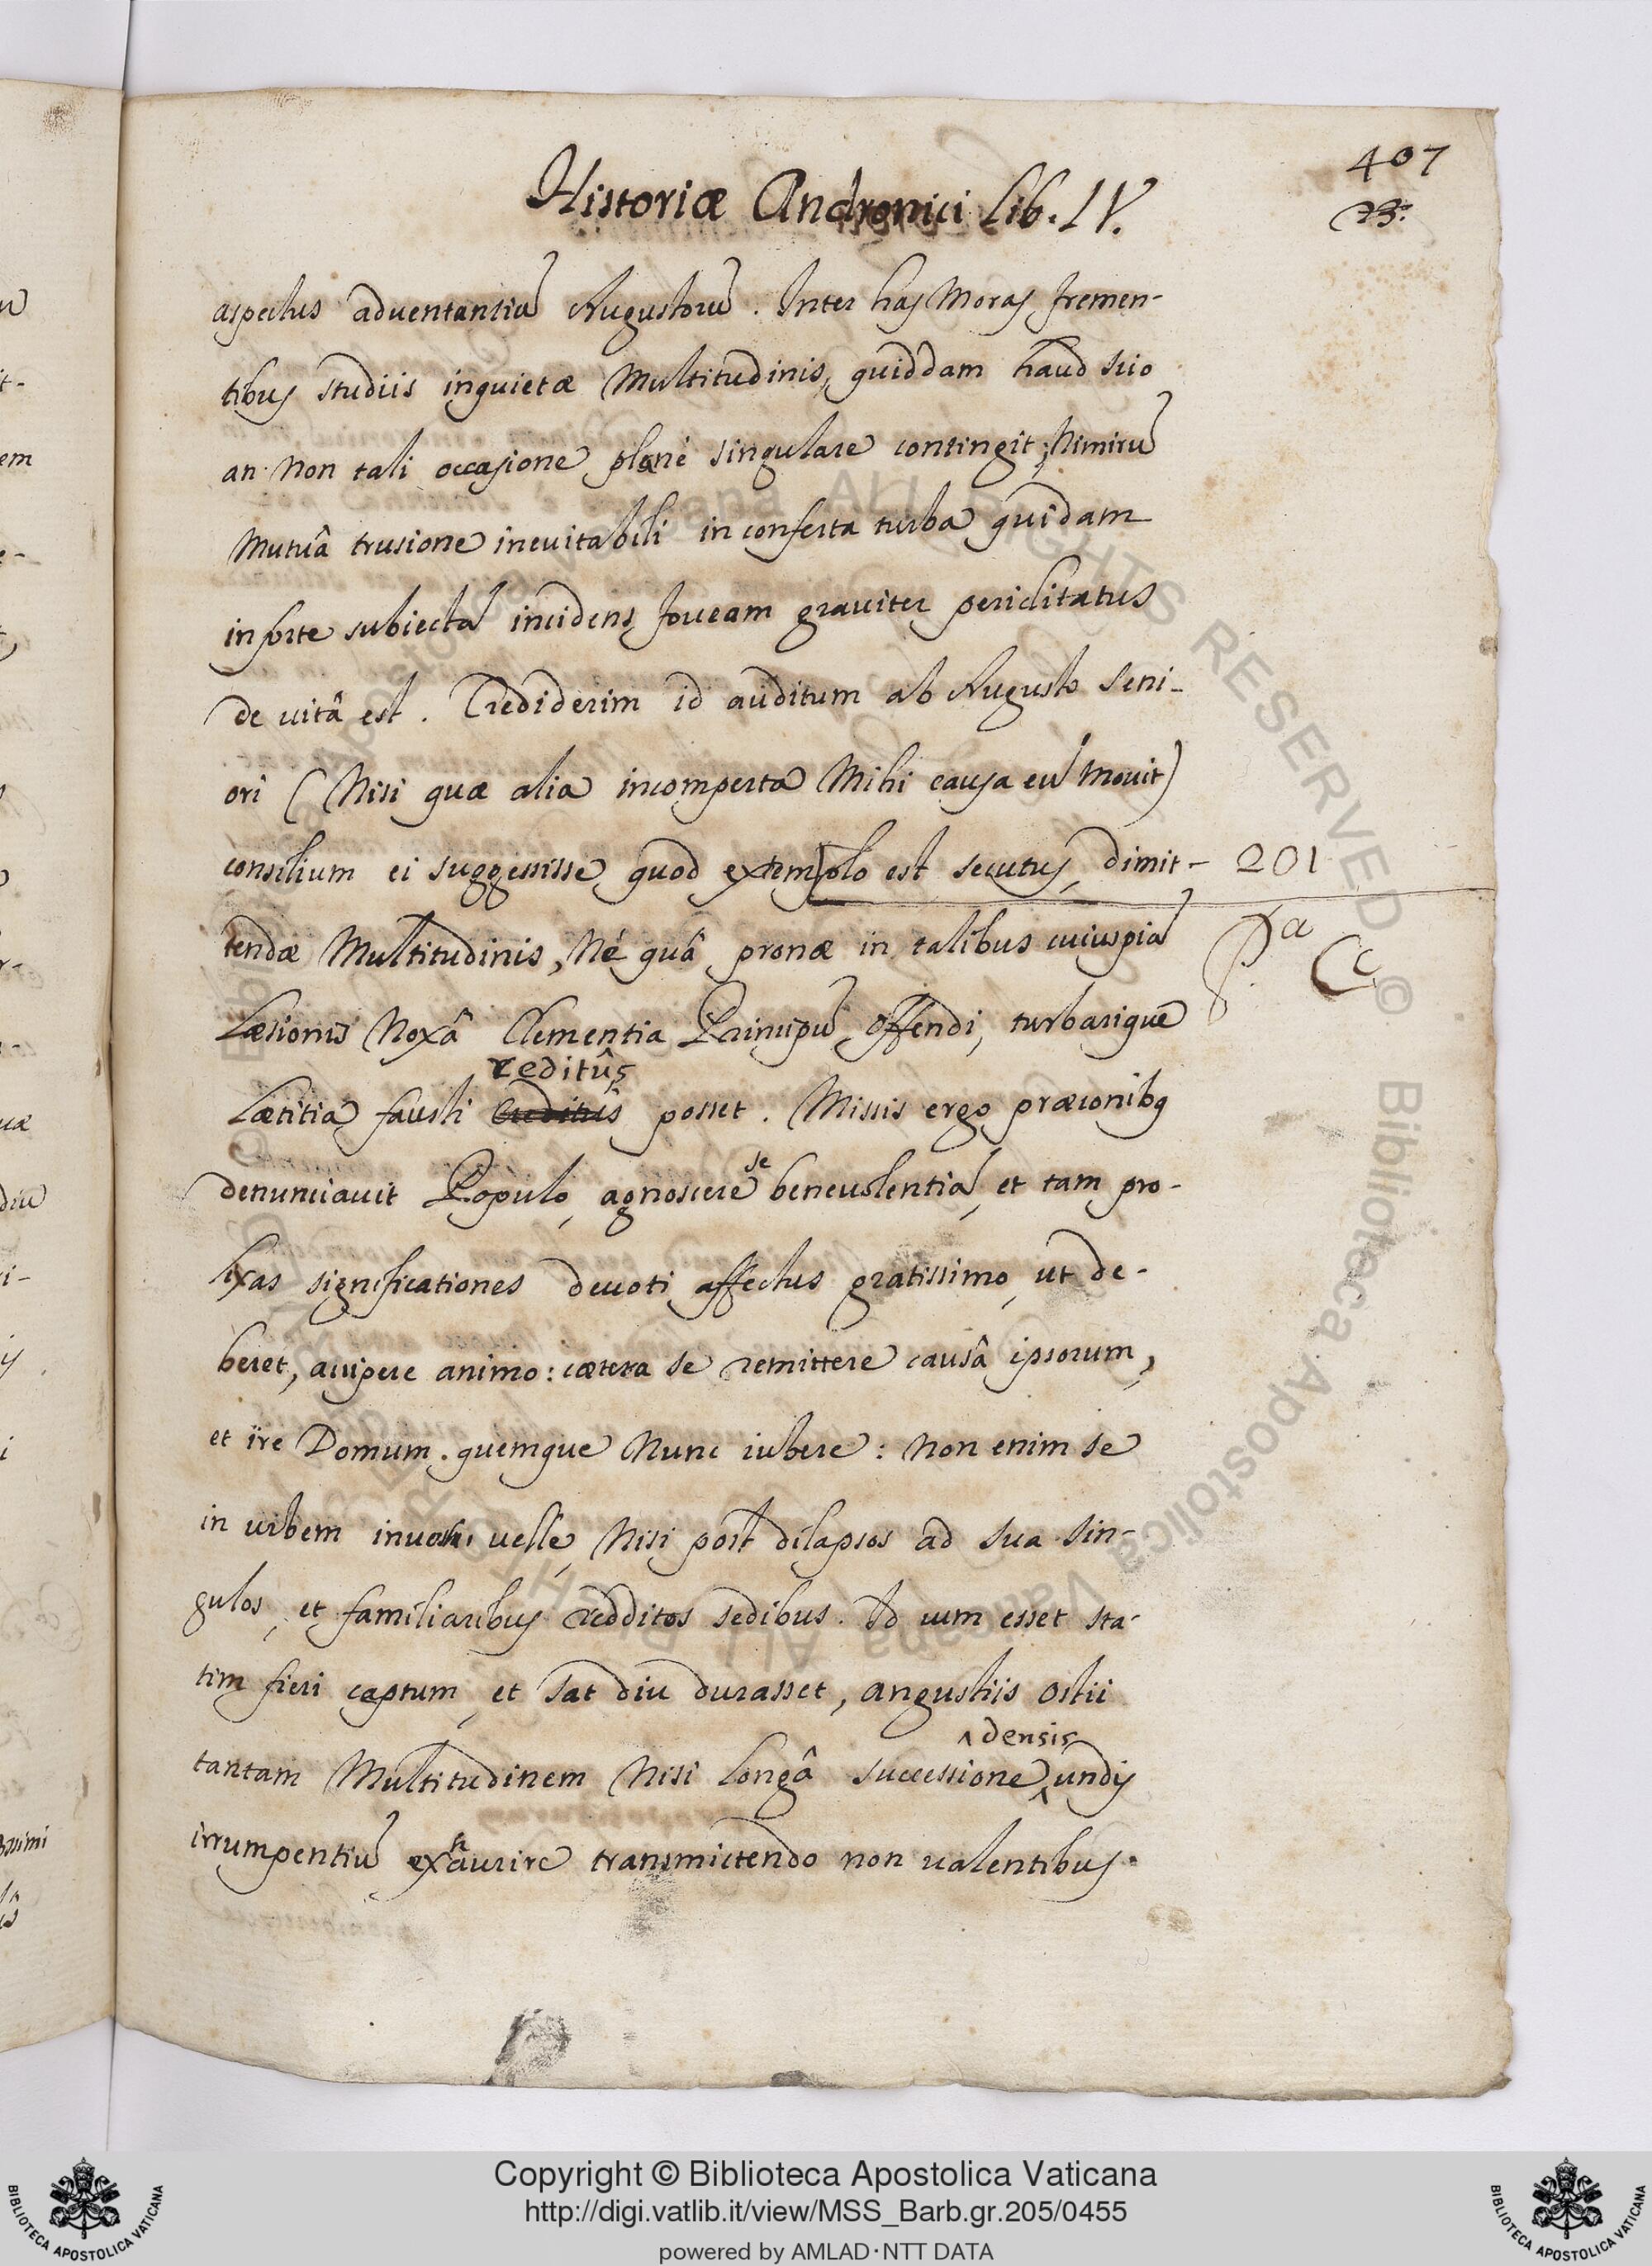 Historiæ Andronici Lib. IV.
407
23.
aspectus adventantiũ Augustorũ. Inter has Moras fremen-
tibus studiis inquietæ Multitudinis, quiddam haud scio
an non tali occasione planè singulare contingit; Nimirũ
Mutuâ trusione inevitabili in conferta turba quidam
in forte subiectã incidens foveam graviter periclitatus
de vitâ est. Crediderim id auditum ab Augusto Seni-
ori (Nisi quæ alia incomperta Mihi causa eũ movit)
consilium ei suggessisse, quod extem[plo est secutus, dimit- 201
tendæ Multitudinis, Nè quâ pronæ in talibus cuiuspiã
Pa Cc
Læsionis Noxâ Clementia Principũ offendi, turbarique
reditûs
Lætitia fausti posset. Missis ergo præconibq
se
denunciavit Populo, agnoscere benevolentiã, et tam pro-
lixas significationes devoti affectus gratissimo, ut de-
beret, accipere animo: cætera se remittere causâ ipsorum,
et ire Domum quemque Nunc iubere: Non enim se
in urbem invehi velle, Nisi post dilapsos ad sua sin-
gulos, et familiaribus redditos sedibus. Id cum esset sta-
tim fieri cæptum, et sat diu durasset, angustiis Ostii
^densis
tantam Multitudinem Nisi longâ successione ^ undis
irrumpentiũ exhaurire transmittendo non valentibus.
Copyright © Biblioteca Apostolica Vaticana
http://digi.vatlib.it/view/MSS_Barb.gr.205/0455
powered by AMLAD·NTT DATA
BIBLIOTECA APOSTOLICA VATICANA
BIBLIOTECA APOSTOLICA VATICANA